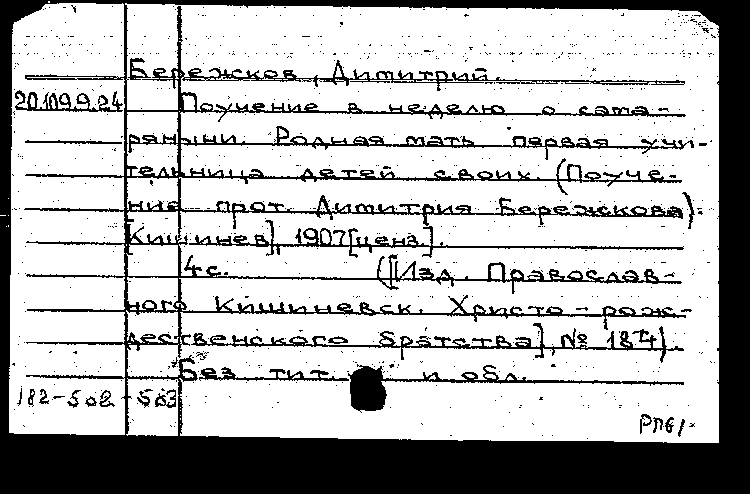 Бережков, Димитрий.
20.109.9.24 Поучение в неделю о сама-
ряныни. Родная мать первая учи-
тельница детей своих. (Поуче-
ние прот. Димитрия Бережкова).
[Кишинев], 1907[ценз.].
4 с. ([Изд. Православ-
ного Кишиневск. Христо-рож-
дественского братства], № 184).
Без тит. л. и обл.
182-502-503